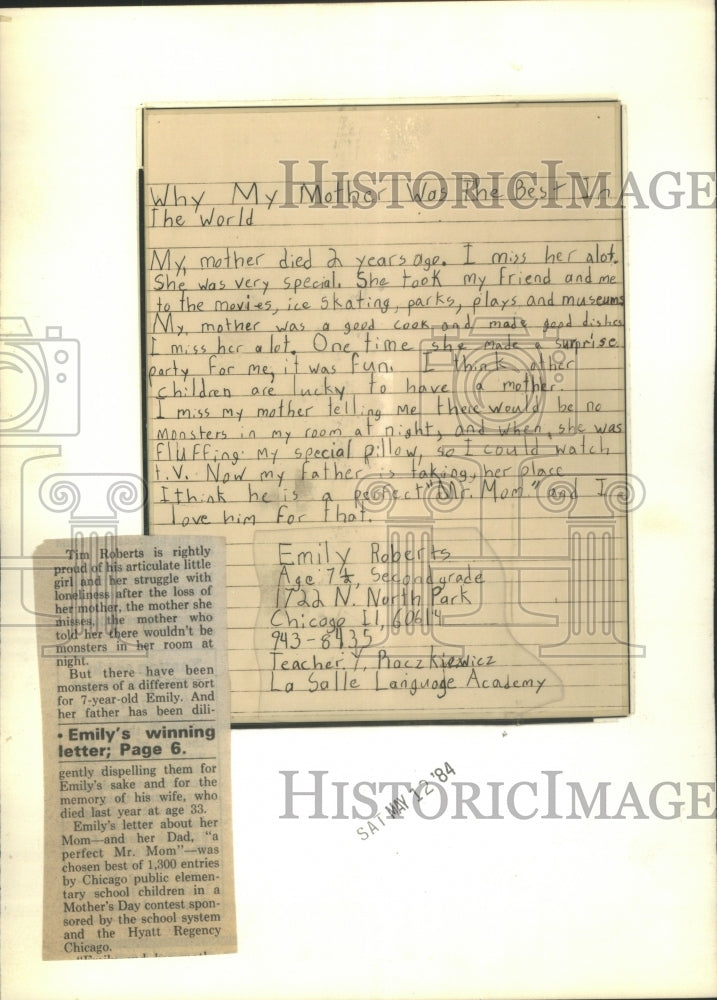 Why My Mother Was the Best In
The World
My, mother died 2 years ago. I miss her alot.
She was very special. She took my friend and me
to the movies, ice skating, parks, plays and museums
My, mother was a good cook and made good dishes
I miss her alot. One time she made a surprise
party for me, it was fun. I think other
children are lucky to have a mother.
I miss my mother telling me there would be no
monsters in my room at night, and when, she was
fluffing my special pillow, so I could watch
t.V. Now my father is taking, her place
I think he is a perfect "Mr. Mom" and I
love him for that.
Emily Roberts
Age 7½, Second grade
1722 N. North Park
Chicago Il, 60614
943-8435
Teacher Y. Raczkiewicz
La Salle Language Academy
Tim Roberts is rightly
proud of his articulate little
girl and her struggle with
loneliness after the loss of
her mother, the mother she
misses, the mother who
told her there wouldn't be
monsters in her room at
night.
But there have been
monsters of a different sort
for 7-year-old Emily. And
her father has been dili-
• Emily's winning
letter; Page 6.
gently dispelling them for
Emily's sake and for the
memory of his wife, who
died last year at age 33.
Emily's letter about her
Mom—and her Dad, "a
perfect Mr. Mom"—was
chosen best of 1,300 entries
by Chicago public elemen-
tary school children in a
Mother's Day contest spon-
sored by the school system
and the Hyatt Regency
Chicago.
SAT MAY 12 '84
HISTORICIMAGES
HISTORICIMAGES